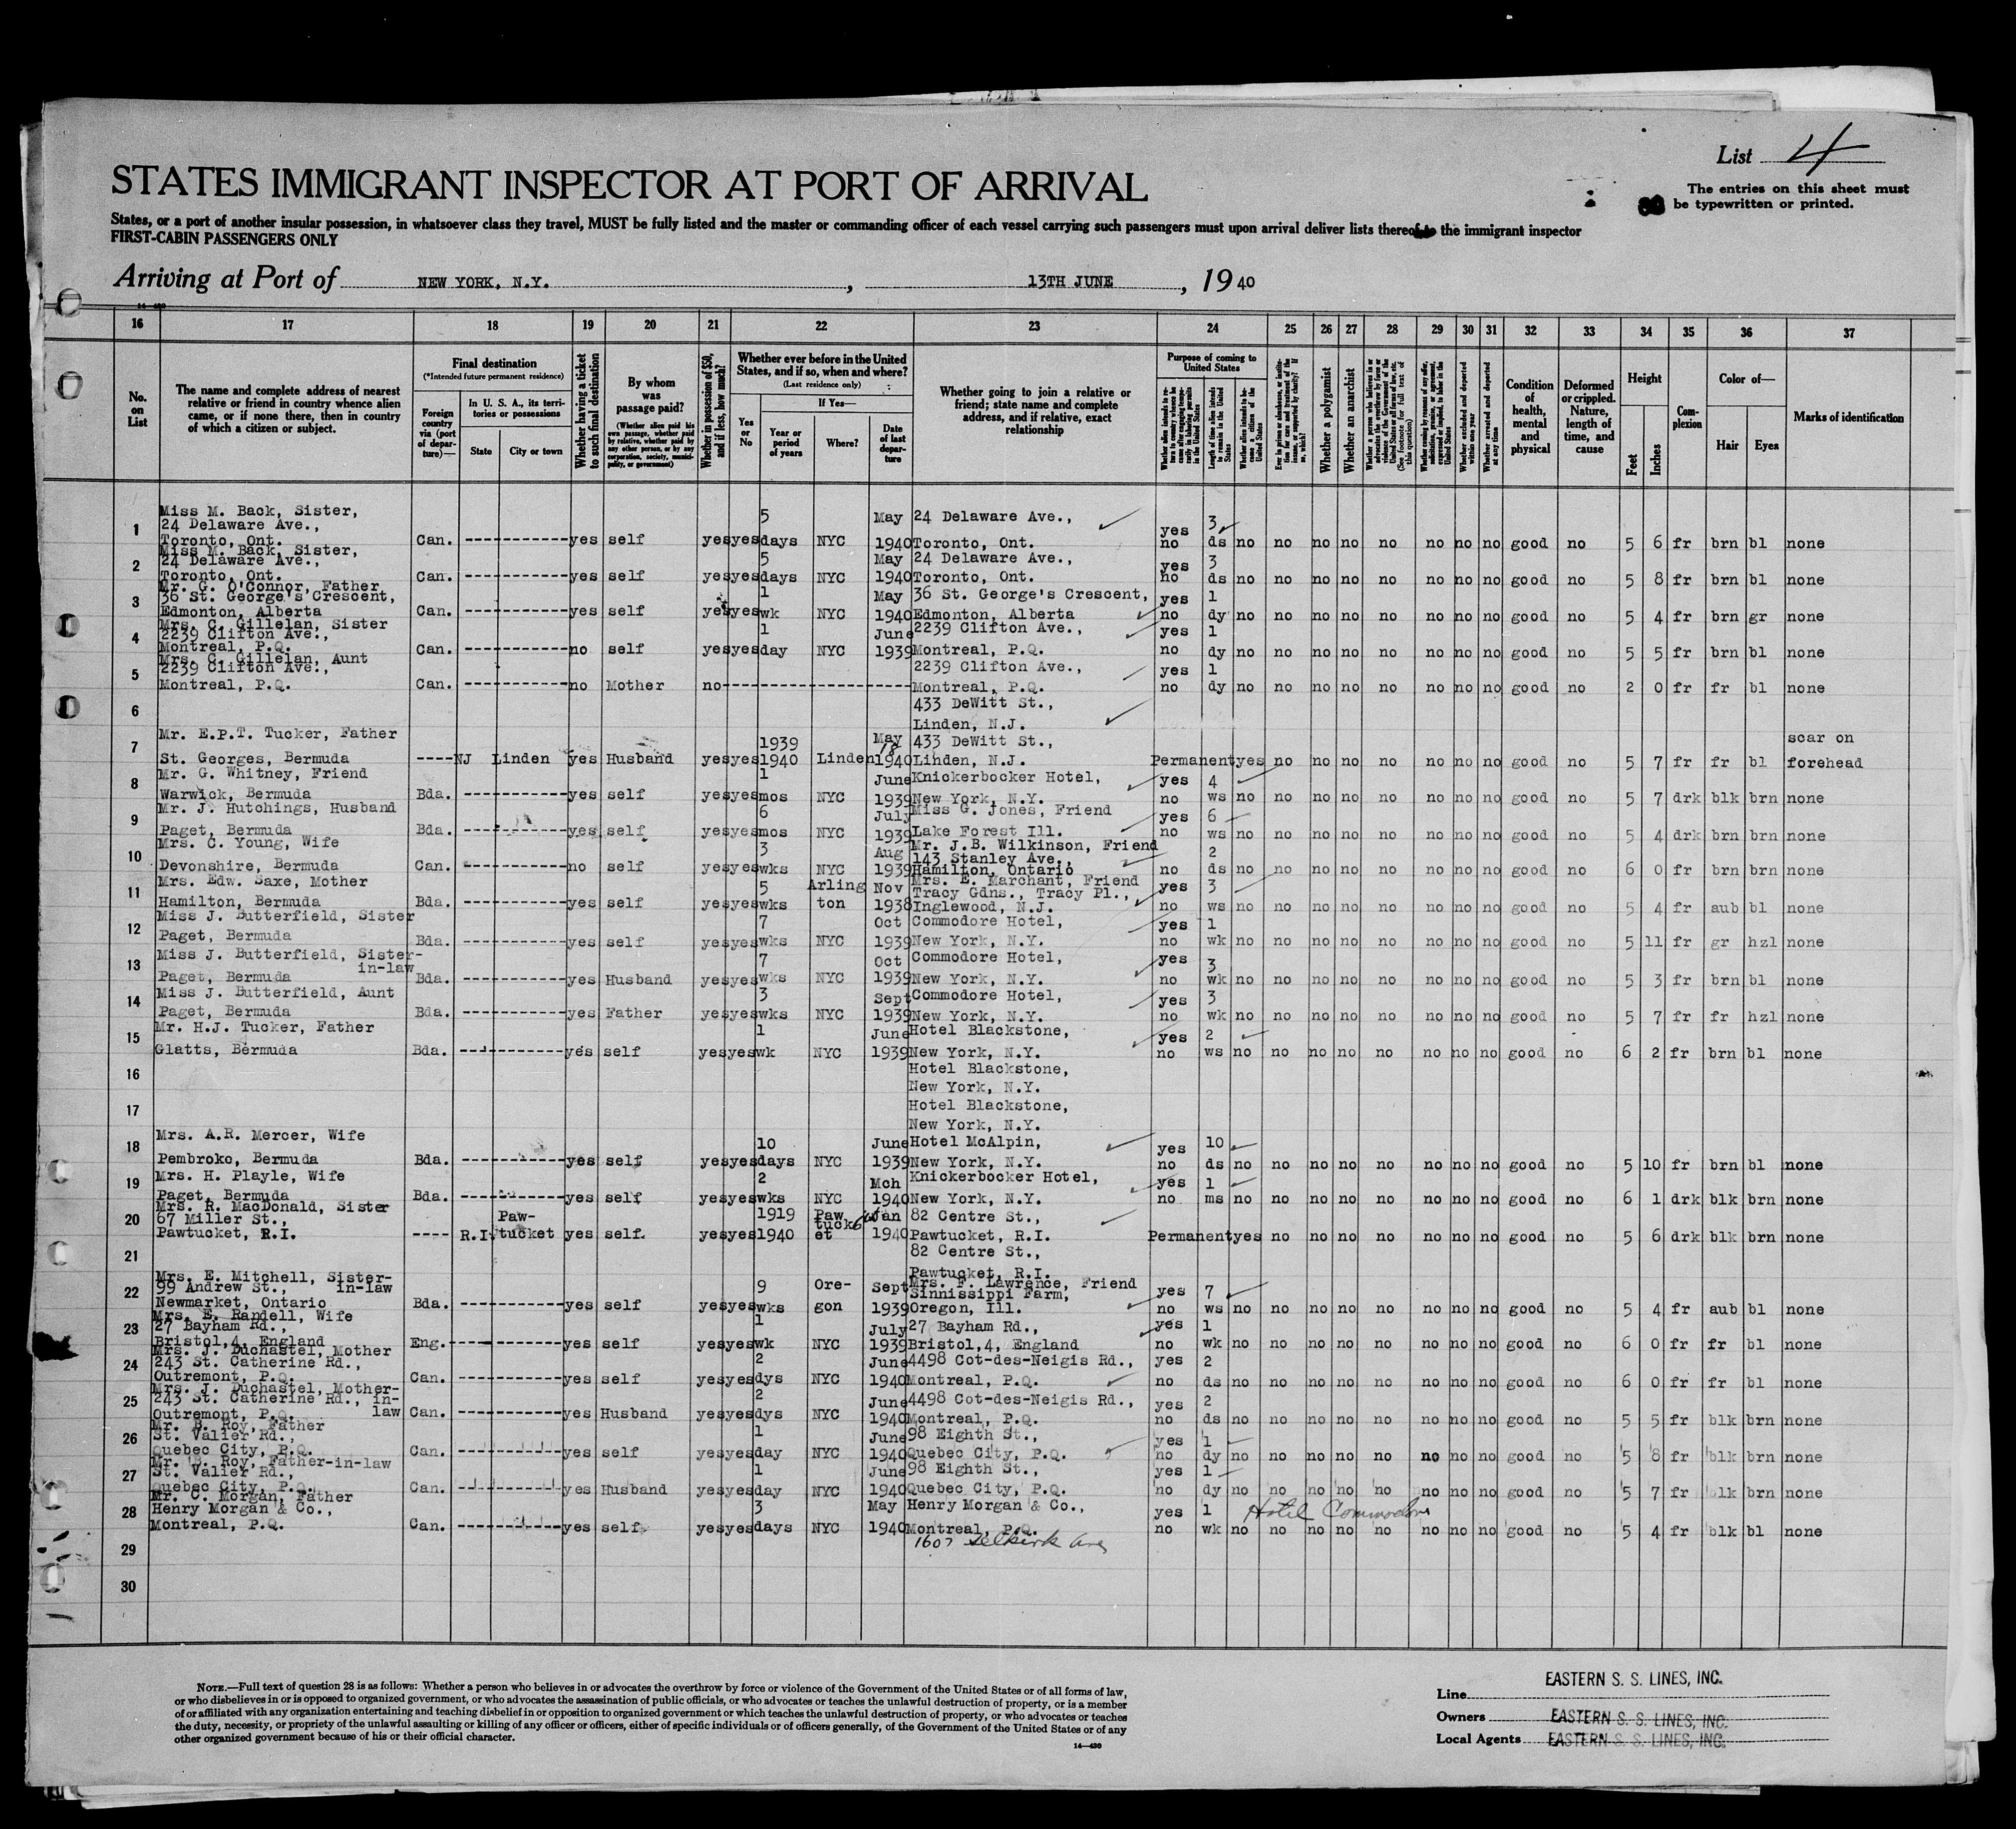 List 4
STATES IMMIGRANT INSPECTOR AT PORT OF ARRIVAL
The entries on this sheet must
be typewritten or printed.
States, or a port of another insular possession, in whatsoever class they travel, MUST be fully listed and the master or commanding officer of each vessel carrying such passengers must upon arrival deliver lists thereof to the immigrant inspector
FIRST-CABIN PASSENGERS ONLY
Arriving at Port of NEW YORK, N.Y. , 13TH JUNE , 19 40
16 17 18 19 20 21 22 23 24 25 26 27 28 29 30 31 32 33 34 35 36 37
No. on List
The name and complete address of nearest relative or friend in country whence alien came, or if none there, then in country of which a citizen or subject.
Final destination
(*Intended future permanent residence)
Foreign country via (port of departure)—
In U. S. A., its territories or possessions
State
City or town
Whether having a ticket to such final destination
By whom was passage paid?
(Whether alien paid his own passage, whether paid by relative, whether paid by any other person, or by any corporation, society, municipality, or government)
Whether in possession of $50, and if less, how much?
Whether ever before in the United States, and if so, when and where?
(Last residence only)
Yes or No
If Yes—
Year or period of years
Where?
Date of last departure
Whether going to join a relative or friend; state name and complete address, and if relative, exact relationship
Purpose of coming to United States
Length of time alien intends to remain in the United States
Whether alien intends to become a citizen of the United States
Whether a polygamist
Whether an anarchist
Whether excluded and deported within one year
Whether arrested and deported at any time
Condition of health, mental and physical
Deformed or crippled. Nature, length of time, and cause
Height
Feet
Inches
Complexion
Color of—
Hair
Eyes
Marks of identification
1 Miss M. Back, Sister, 24 Delaware Ave., Toronto, Ont. Can. yes self yes yes 5 days NYC May 1940 24 Delaware Ave., Toronto, Ont. yes no 3 ds no no no no no no no no good no 5 6 fr brn bl none
2 Miss M. Back, Sister, 24 Delaware Ave., Toronto, Ont. Can. yes self yes yes 5 days NYC May 1940 24 Delaware Ave., Toronto, Ont. yes no 3 ds no no no no no no no no good no 5 8 fr brn bl none
3 Mr. G. O'Connor, Father 36 St. George's Crescent, Edmonton, Alberta Can. yes self yes yes 1 wk NYC May 1940 36 St. George's Crescent, Edmonton, Alberta yes no 1 dy no no no no no no no no good no 5 4 fr brn gr none
4 Mrs. C. Gillelan, Sister 2239 Clifton Ave., Montreal, P.Q. Can. no self yes yes 1 day NYC June 1939 2239 Clifton Ave., Montreal, P.Q. yes no 1 dy no no no no no no no no good no 5 5 fr brn bl none
5 Mrs. C. Gillelan, Aunt 2239 Clifton Ave., Montreal, P.Q. Can. no Mother no 2239 Clifton Ave., Montreal, P.Q. yes no 1 dy no no no no no no no no good no 2 0 fr fr bl none
6 433 DeWitt St., Linden, N.J.
7 Mr. E.P.T. Tucker, Father St. Georges, Bermuda ---- NJ Linden yes Husband yes yes 1939 1940 Linden May 18 1940 433 DeWitt St., Linden, N.J. Permanent yes no no no no no no no good no 5 7 fr fr bl scar on forehead
8 Mr. G. Whitney, Friend Warwick, Bermuda Bda. yes self yes yes 1 mos NYC June 1939 Knickerbocker Hotel, New York, N.Y. yes no 4 ws no no no no no no no no good no 5 7 drk blk brn none
9 Mr. J. Hutchings, Husband Paget, Bermuda Bda. yes self yes yes 6 mos NYC July 1939 Miss G. Jones, Friend Lake Forest Ill. yes no 6 ws no no no no no no no no good no 5 4 drk brn brn none
10 Mrs. C. Young, Wife Devonshire, Bermuda Can. no self yes yes 3 wks NYC Aug 1939 Mr. J.B. Wilkinson, Friend 143 Stanley Ave., Hamilton, Ontario no 2 ds no no no no no no no no good no 6 0 fr brn brn none
11 Mrs. Edw. Saxe, Mother Hamilton, Bermuda Bda. yes self yes yes 5 wks Arlington Nov 1938 Mrs. E. Marchant, Friend Tracy Gdns., Tracy Pl., Inglewood, N.J. yes no 3 ws no no no no no no no no good no 5 4 fr aub bl none
12 Miss J. Butterfield, Sister Paget, Bermuda Bda. yes self yes yes 7 wks NYC Oct 1939 Commodore Hotel, New York, N.Y. yes no 1 wk no no no no no no no no good no 5 11 fr gr hzl none
13 Miss J. Butterfield, Sister-in-law Paget, Bermuda Bda. yes Husband yes yes 7 wks NYC Oct 1939 Commodore Hotel, New York, N.Y. yes no 3 wk no no no no no no no no good no 5 3 fr brn bl none
14 Miss J. Butterfield, Aunt Paget, Bermuda Bda. yes Father yes yes 3 wks NYC Sept 1939 Commodore Hotel, New York, N.Y. yes no 3 wk no no no no no no no no good no 5 7 fr fr hzl none
15 Mr. H.J. Tucker, Father Glatts, Bermuda Bda. yes self yes yes 1 wk NYC June 1939 Hotel Blackstone, New York, N.Y. yes no 2 ws no no no no no no no no good no 6 2 fr brn bl none
16 Hotel Blackstone, New York, N.Y.
17 Hotel Blackstone, New York, N.Y.
18 Mrs. A.R. Mercer, Wife Pembroke, Bermuda Bda. yes self yes yes 10 days NYC June 1939 Hotel McAlpin, New York, N.Y. yes no 10 ds no no no no no no no no good no 5 10 fr brn bl none
19 Mrs. H. Playle, Wife Paget, Bermuda Bda. yes self yes yes 2 wks NYC Mch 1940 Knickerbocker Hotel, New York, N.Y. yes no 1 ms no no no no no no no no good no 6 1 drk blk brn none
20 Mrs. R. MacDonald, Sister 67 Miller St., Pawtucket, R.I. ---- R.I. Paw-tucket yes self yes yes 1919 1940 Pawtucket Jan 1940 82 Centre St., Pawtucket, R.I. Permanent yes no no no no no no no good no 5 6 drk blk brn none
21 82 Centre St., Pawtucket, R.I.
22 Mrs. E. Mitchell, Sister-in-law 99 Andrew St., Newmarket, Ontario Bda. yes self yes yes 9 wks Ore-gon Sept 1939 Mrs. F. Lawrence, Friend Sinnissippi Farm, Oregon, Ill. yes no 7 ws no no no no no no no no good no 5 4 fr aub bl none
23 Mrs. E. Randell, Wife 27 Bayham Rd., Bristol,4, England Eng. yes self yes yes 1 wk NYC July 1939 27 Bayham Rd., Bristol,4, England yes no 1 wk no no no no no no no no good no 6 0 fr fr bl none
24 Mrs. J. Duchastel, Mother 243 St. Catherine Rd., Outremont, P.Q. Can. yes self yes yes 2 dys NYC June 1940 4498 Cot-des-Neigis Rd., Montreal, P.Q. yes no 2 ds no no no no no no no no good no 6 0 fr fr bl none
25 Mrs. J. Duchastel, Mother-in-law 243 St. Catherine Rd., Outremont, P.Q. Can. yes Husband yes yes 2 dys NYC June 1940 4498 Cot-des-Neigis Rd., Montreal, P.Q. yes no 2 ds no no no no no no no no good no 5 5 fr blk brn none
26 Mr. B. Roy, Father St. Valier Rd., Quebec City, P.Q. Can. yes self yes yes 1 day NYC June 1940 98 Eighth St., Quebec City, P.Q. yes no 1 dy no no no no no no no no good no 5 8 fr blk brn none
27 Mr. B. Roy, Father-in-law St. Valier Rd., Quebec City, P.Q. Can. yes Husband yes yes 1 day NYC June 1940 98 Eighth St., Quebec City, P.Q. yes no 1 dy no no no no no no no no good no 5 7 fr blk brn none
28 Mr. C. Morgan, Father Henry Morgan & Co., Montreal, P.Q. Can. yes self yes yes 3 days NYC May 1940 Henry Morgan & Co., Montreal, P.Q. yes no 1 wk no no no no no no no no good no 5 4 fr blk bl none
Hotel Commodore
29 1607 Selkirk Ave
30
NOTE.—Full text of question 28 is as follows: Whether a person who believes in or advocates the overthrow by force or violence of the Government of the United States or of all forms of law,
or who disbelieves in or is opposed to organized government, or who advocates the assassination of public officials, or who advocates or teaches the unlawful destruction of property, or is a member
of or affiliated with any organization entertaining and teaching disbelief in or opposition to organized government or which teaches the unlawful destruction of property, or who advocates or teaches
the duty, necessity, or propriety of the unlawful assaulting or killing of any officer or officers, either of specific individuals or of officers generally, of the Government of the United States or of any
other organized government because of his or their official character.
14—430
Line EASTERN S. S. LINES, INC.
Owners EASTERN S. S. LINES, INC.
Local Agents EASTERN S. S. LINES, INC.